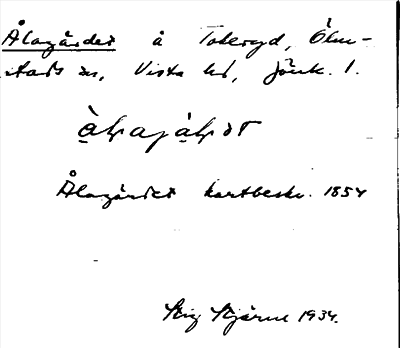 Ålagärdet å Toberyd, Ölm-
stads sn, Vista hd, Jönk. l.
Ålagärdet kartbeskr. 1854
Stig Stjärne 1934.